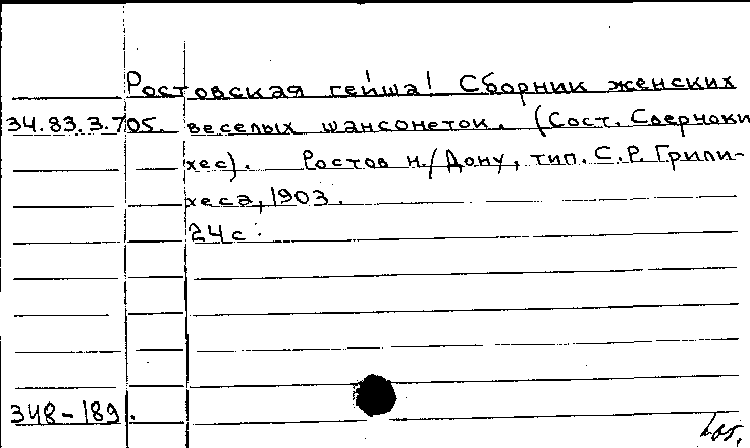 Ростовская гейша! Сборник женских
34.83.3.705. веселых шансонеток. (Сост.
хес). Ростов н/Дону, тип. С.Р. Грили-
хеса, 1903.
24 с.
348-189.